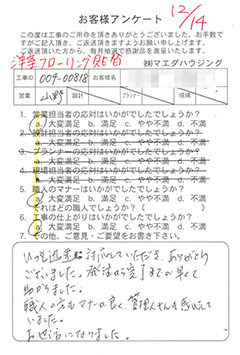 お客様アンケート
12/14
この度は工事のご用命を頂きありがとうございます。お手数で
すがご記入頂き、ご返送頂きますようお願い申し上げます。
ご返送いただいた方から、毎月抽選で感謝品を進呈いたします。
洋室フローリング貼替
㈱マエダハウジング
工事ID 009-00818 お客様名
営業 山野 設計 プランナー 現場
1. 営業担当者の応対はいかがでしたでしょうか?
a. 大変満足 b. 満足 c. やや不満 d. 不満
2. 設計担当者の応対はいかがでしたでしょうか?
a. 大変満足 b. 満足 c. やや不満 d. 不満
3. プランナーの応対はいかがでしたでしょうか?
a. 大変満足 b. 満足 c. やや不満 d. 不満
4. 現場担当者の応対はいかがでしたでしょうか?
a. 大変満足 b. 満足 c. やや不満 d. 不満
5. 職人のマナーはいかがでしたでしょうか?
a. 大変満足 b. 満足 c. やや不満 d. 不満
それはどの職人でしょう(
6. 工事の仕上がりはいかがでしたでしょうか?
a. 大変満足 b. 満足 c. やや不満 d. 不満
7. その他、ご意見・ご要望をお書き下さい。
いつも迅速に対応していただき、ありがとう
ございました。発注から完了までが早くて
助かりました。
職人の方もマナーが良く、管理人さんも感心して
いました。
お世話になりました。